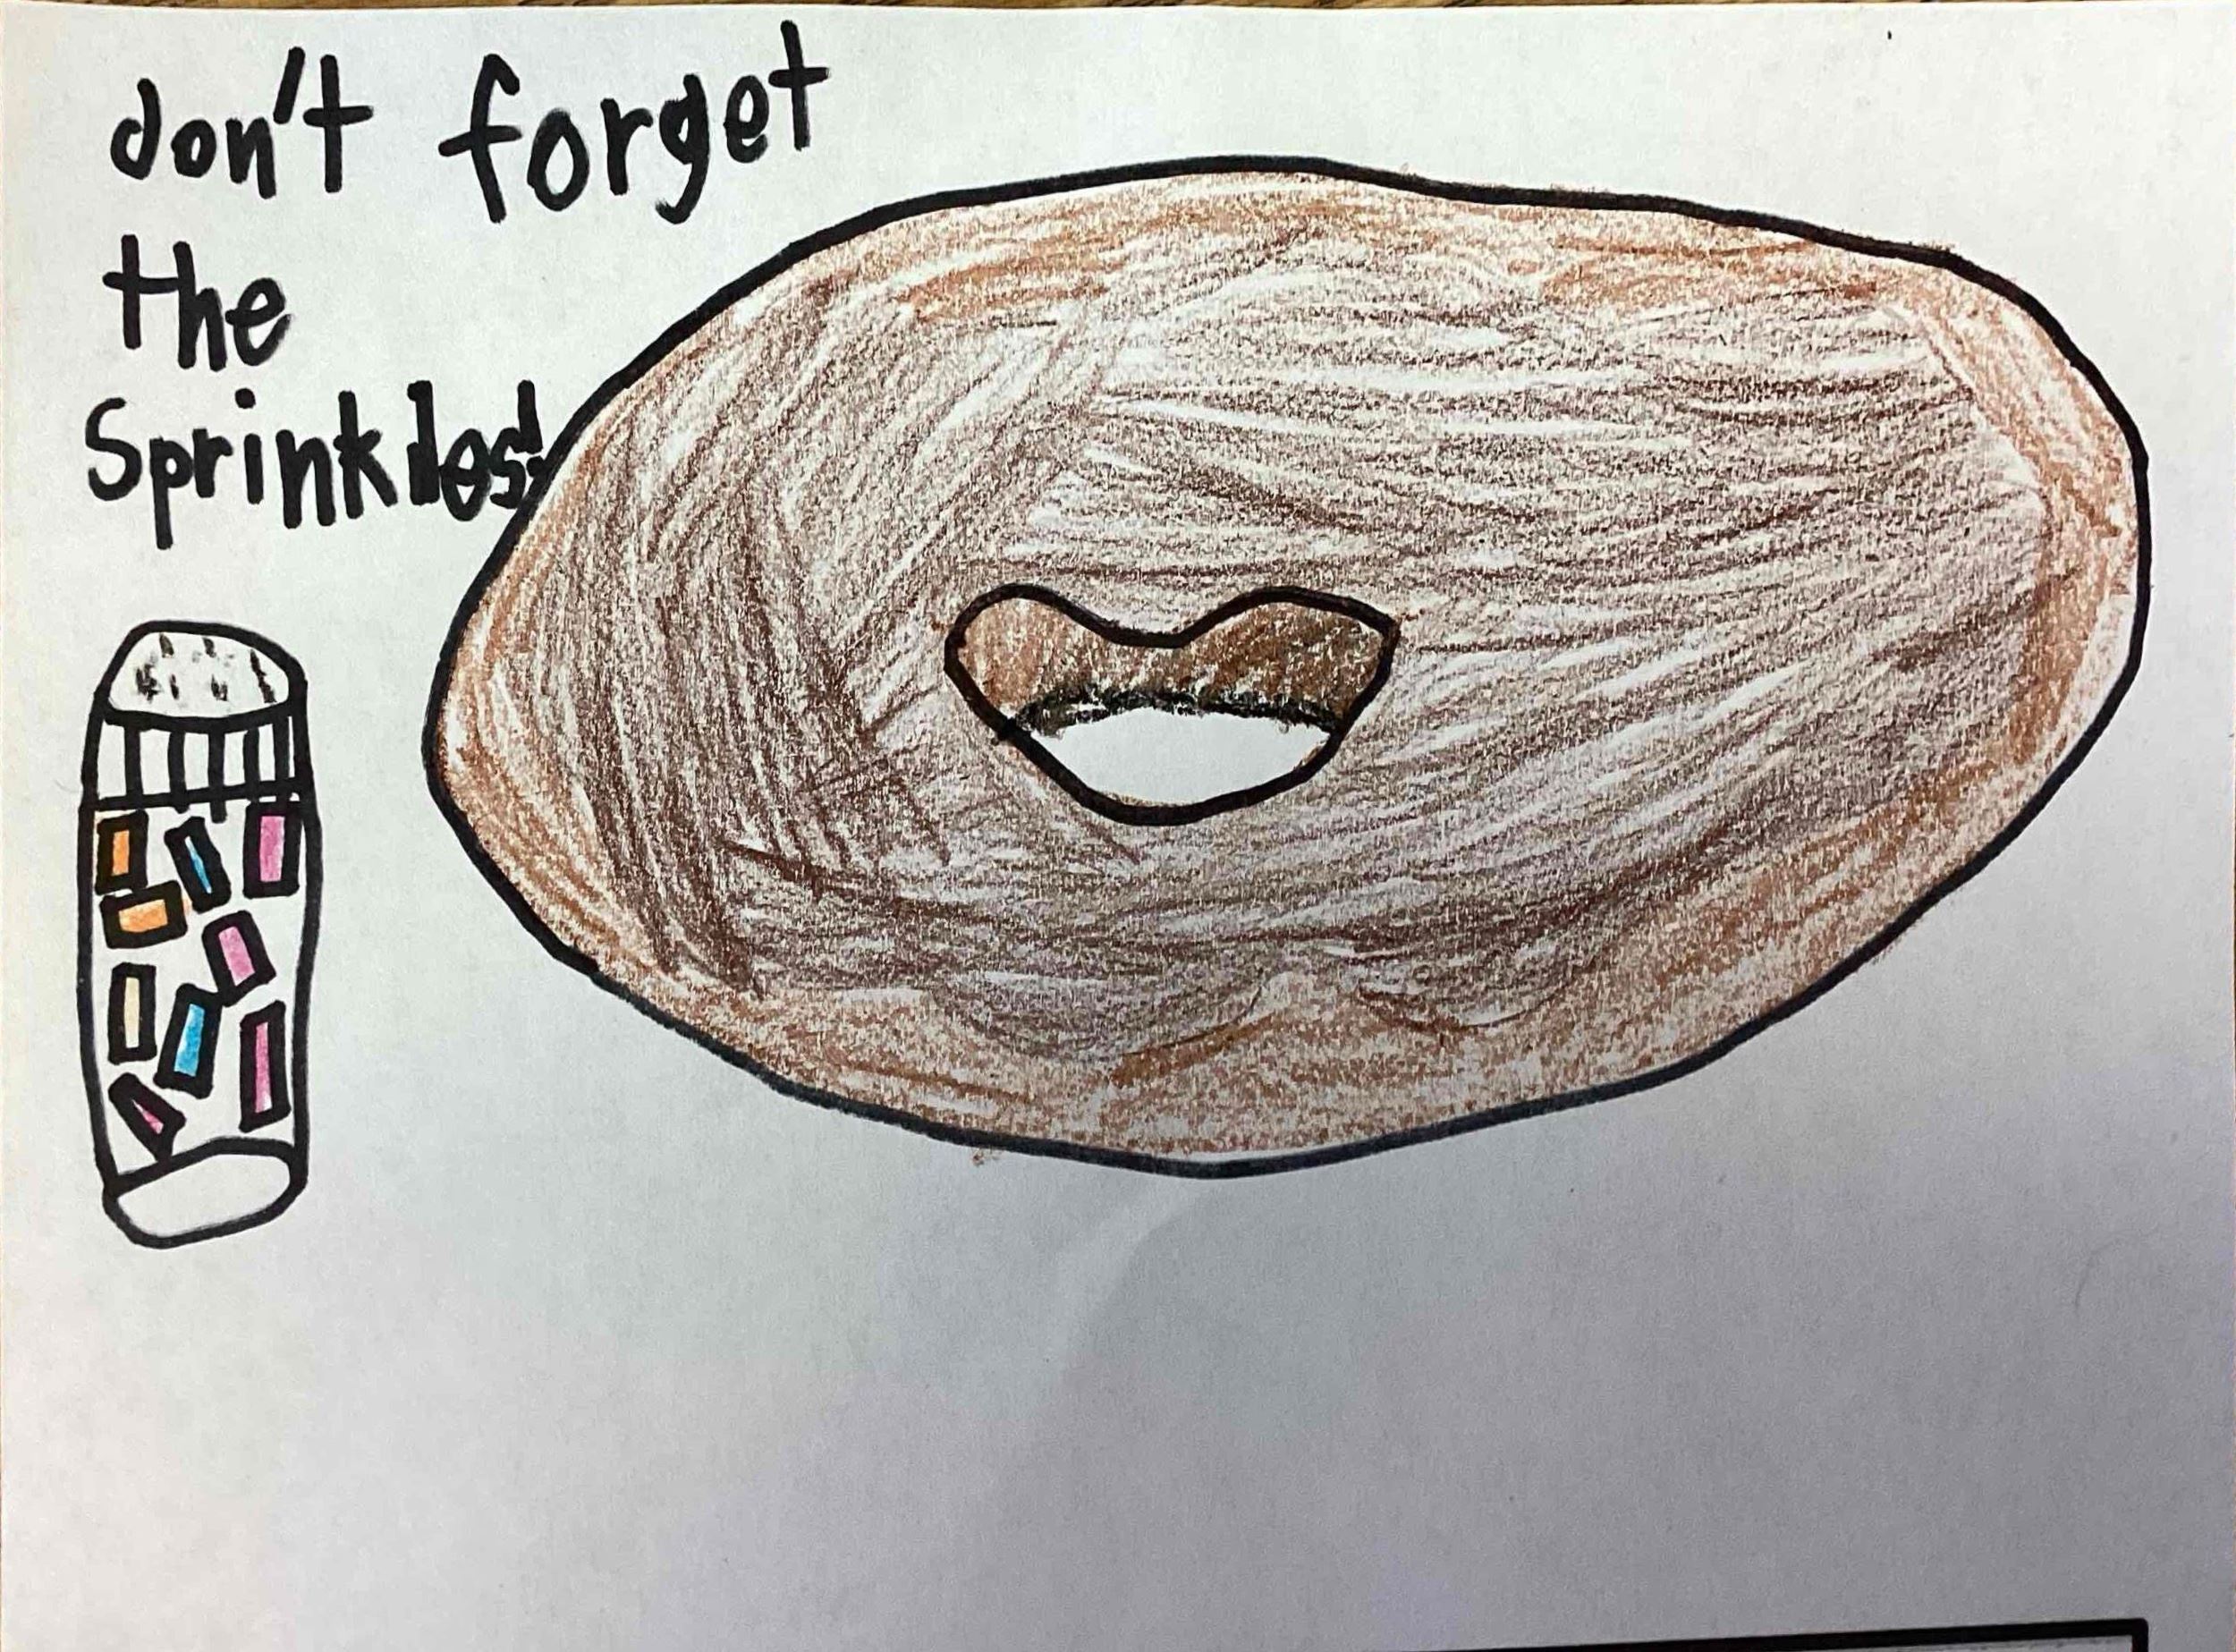 don't forget
the
Sprinkles!